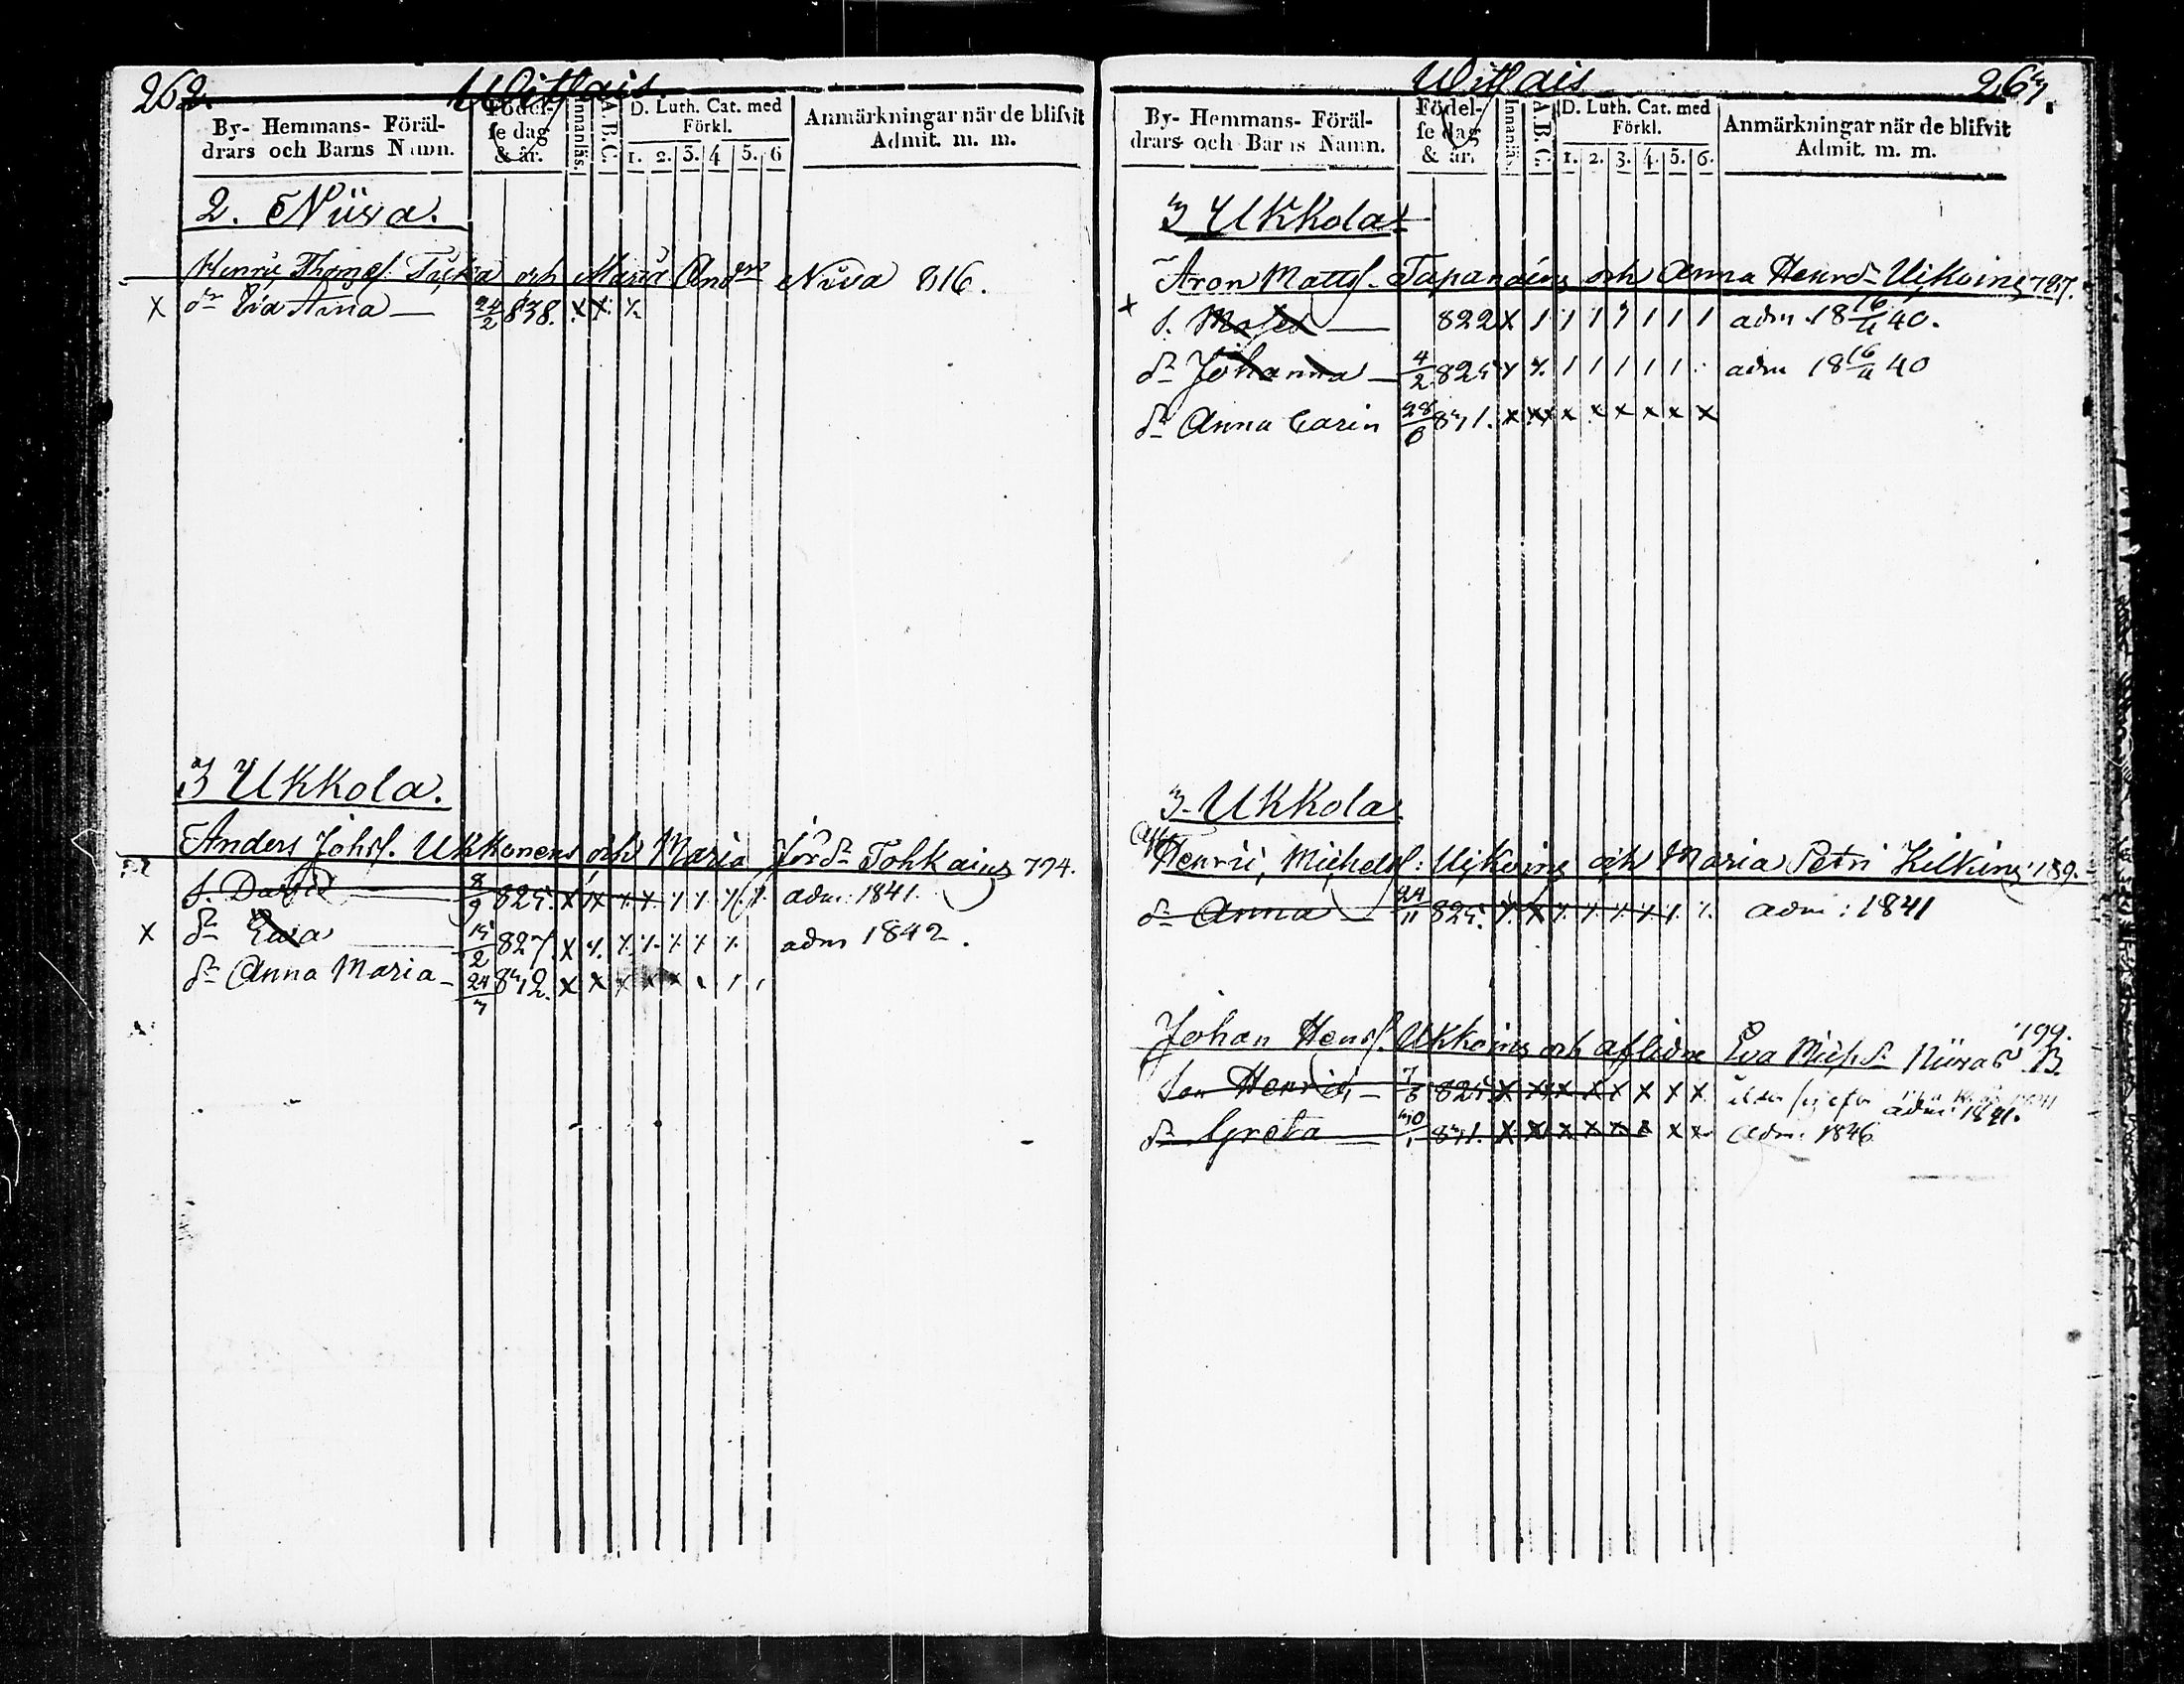 262.
Withais
By- Hemmans- Föräl-
drars och Barns Namn.
Födel-
se dag
& år.
Innanläs.
A. B. C.
D. Luth. Cat. med
Förkl.
1. 2. 3. 4 5. 6
Anmärkningar när de blifvit
Admit. m. m.
2. Niiva.
Henric Thomæs. och Maria And Niva 816.
X dr Eva Anna — 24/2 838. X X
3 Ukkola.
Anders Johs. Ukkonens och Maria Tohkains 794.
s. David 8/9 825. X X adm: 1841.
X dr Ewa 15/2 827. X adm 1842.
dr Anna Maria — 24/3 832. X X X X X
Withais
263.
By- Hemmans- Föräl-
drars och Barns Namn.
Födel-
se dag
& år.
Innanlä.
A. B. C.
D. Luth. Cat. med
Förkl.
1. 2. 3. 4. 5. 6.
Anmärkningar när de blifvit
Admit. m. m.
3 Ukkola.
Aron Matts. Tapanains och Anna Henrd. 787.
X s. Moses — 822 X 1 1 1 1 1 1 adm. 18 16/4 40.
dr Johanna — 4/2 825 1 1 1 1 1 adm 18 16/4 40
dr Anna Carin 28/6 831. X X X X X X X X X
3. Ukkola
Henric Michels: och Maria Petri 789.
dr Anna 24/11 825. X adm: 1841
Johan Hens. Ukkoins och aflidne Eva Michdr 799.
Son Henric — 7/6 825 X X X X X X X X adm: 1841.
dr Greta 30/1 831. X X X X X X X X adm. 1846